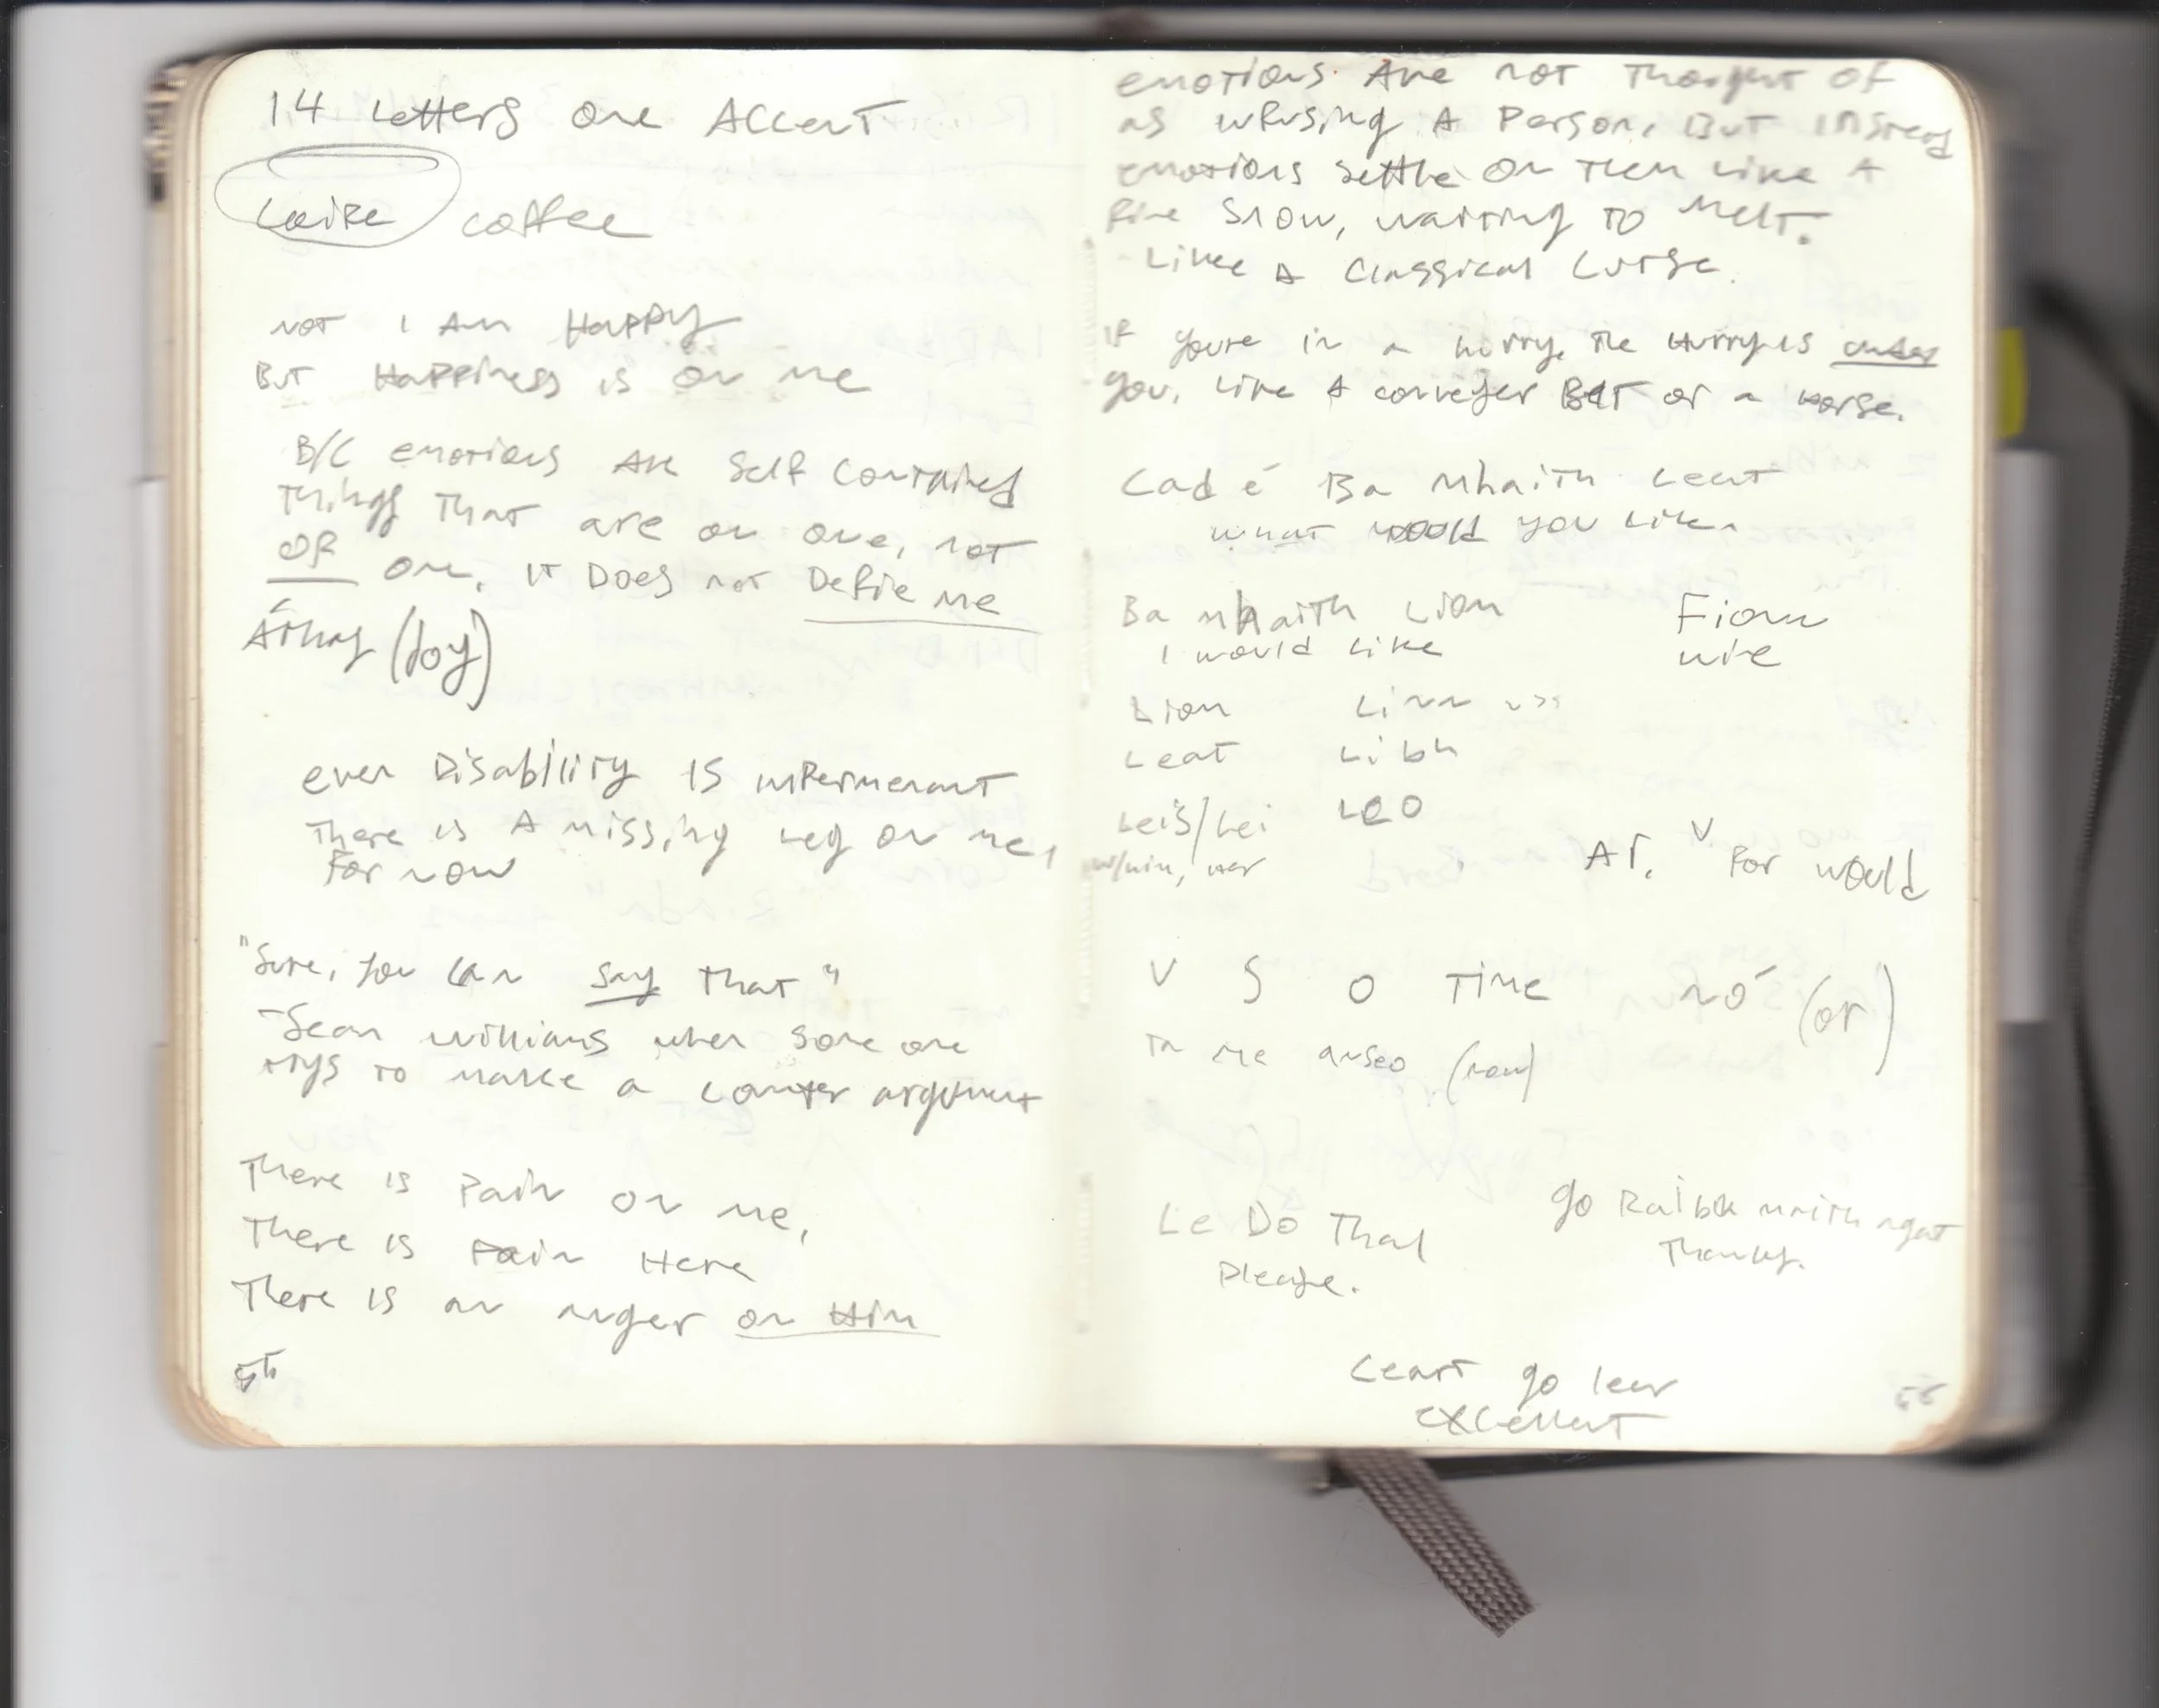 14 Letters one Accent
Caife coffee
NOT I Am Happy
But Happiness is on me
B/C emotions are self contained
things that are on one, not
of one. It Does not Define me
Áthas (Joy)
even Disability is impermenant
There is A missing leg on me,
For now
"Sure, you can say that"
-Sean Williams when some one
trys to make a counter argument
There is Pain on me,
There is Pain Here
There is an anger on Him
emotions. Are not Thought of
as infusing A Person, But instead
emotions settle on them like A
fine snow, waiting to Melt.
- Like A Classical Curse.
If you're in a hurry, the Hurry is under
you, like A conveyer Belt or a horse.
Cad é Ba Mhaith Leat
what would you like
Ba mhaith Liom
I would like
Fion
wine
Liom Linn us
Leat Libh
Leis/Lei Leo
w/him, her
V For would
V S O Time nó (or)
anseo (now)
Le Do Thal
Please.
go Raibh maith agat
Thanks.
Ceart go leor
excellent